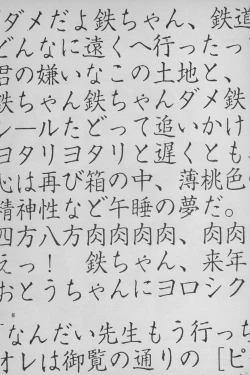 ダメだよ鉄ちゃん、鉄道
どんなに遠くへ行ったっ
君の嫌いなこの土地と、
鉄ちゃん鉄ちゃんダメ鉄
レールたどって追いかけ
ヨタリヨタリと遅くとも
心は再び箱の中、薄桃色
精神性など午睡の夢だ。
四方八方肉肉肉肉、肉肉
えっ！　鉄ちゃん、来年
おとうちゃんにヨロシク
「なんだい先生もう行っち
オレは御覧の通りの［ピ